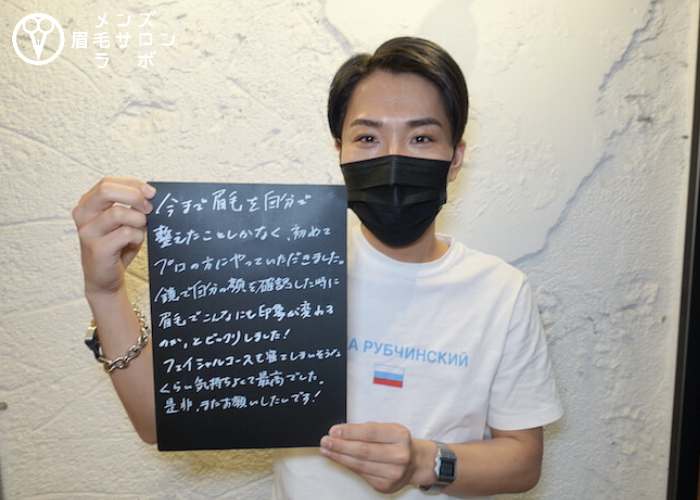 メンズ
眉毛サロン
ラボ
今まで眉毛を自分で
整えたことしかなく、初めて
プロの方にやっていただきました。
鏡で自分の顔を確認した時に
眉毛でこんなにも印象が変わる
のか、とビックリしました!
フェイシャルコースも寝てしまいそうな
くらい気持ちよくて最高でした。
是非、またお願いしたいです!
А РУБЧИНСКИЙ